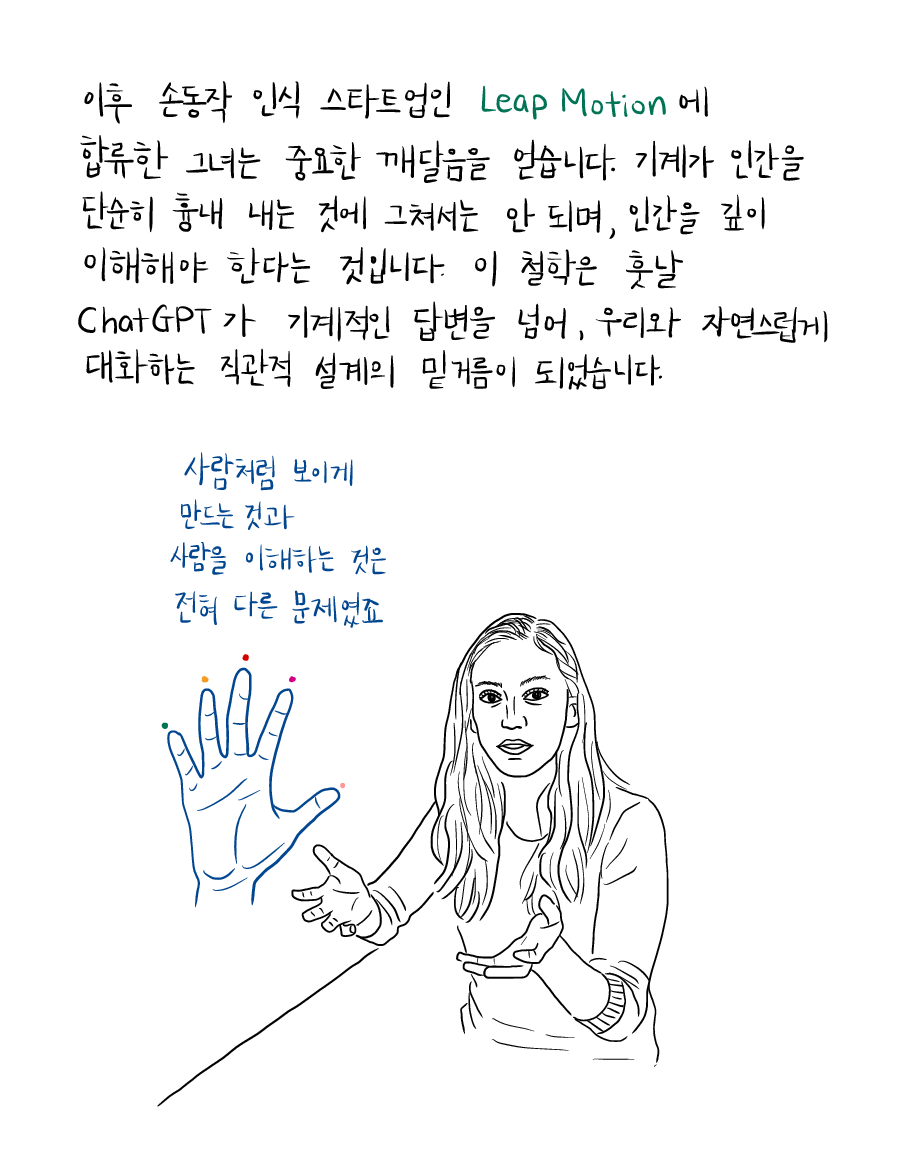 이후 손동작 인식 스타트업인 Leap Motion에
합류한 그녀는 중요한 깨달음을 얻습니다. 기계가 인간을
단순히 흉내 내는 것에 그쳐서는 안 되며, 인간을 깊이
이해해야 한다는 것입니다. 이 철학은 훗날
ChatGPT가 기계적인 답변을 넘어, 우리와 자연스럽게
대화하는 직관적 설계의 밑거름이 되었습니다.
사람처럼 보이게
만드는 것과
사람을 이해하는 것은
전혀 다른 문제였죠